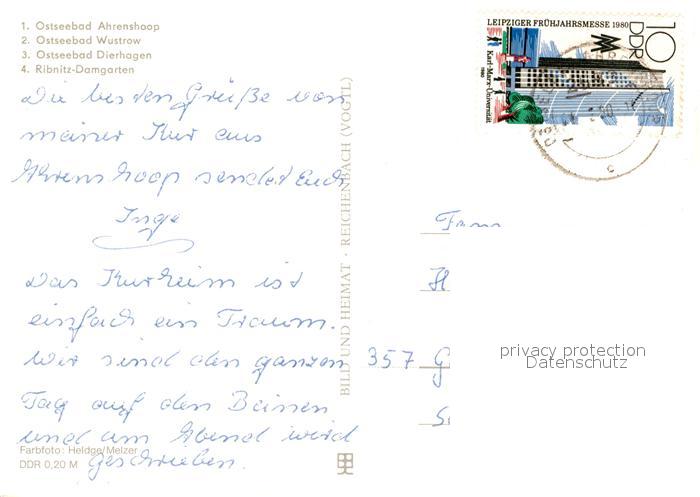 1. Ostseebad Ahrenshoop
2. Ostseebad Wustrow
3. Ostseebad Dierhagen
4. Ribnitz-Damgarten
Die besten Grüße von
meiner Kur aus
Ahrenshoop sendet Euch
Inge
Das Kurheim ist
einfach ein Traum.
Wir sind den ganzen
Tag auf den Beinen
und am Abend wird
geschrieben.
Farbfoto: Heldge/Melzer
DDR 0,20 M
BILD UND HEIMAT · REICHENBACH (VOGTL)
LEIPZIGER FRÜHJAHRSMESSE 1980
DDR
10
Karl-Marx-Universität
1980
H
357 G
privacy protection
Datenschutz